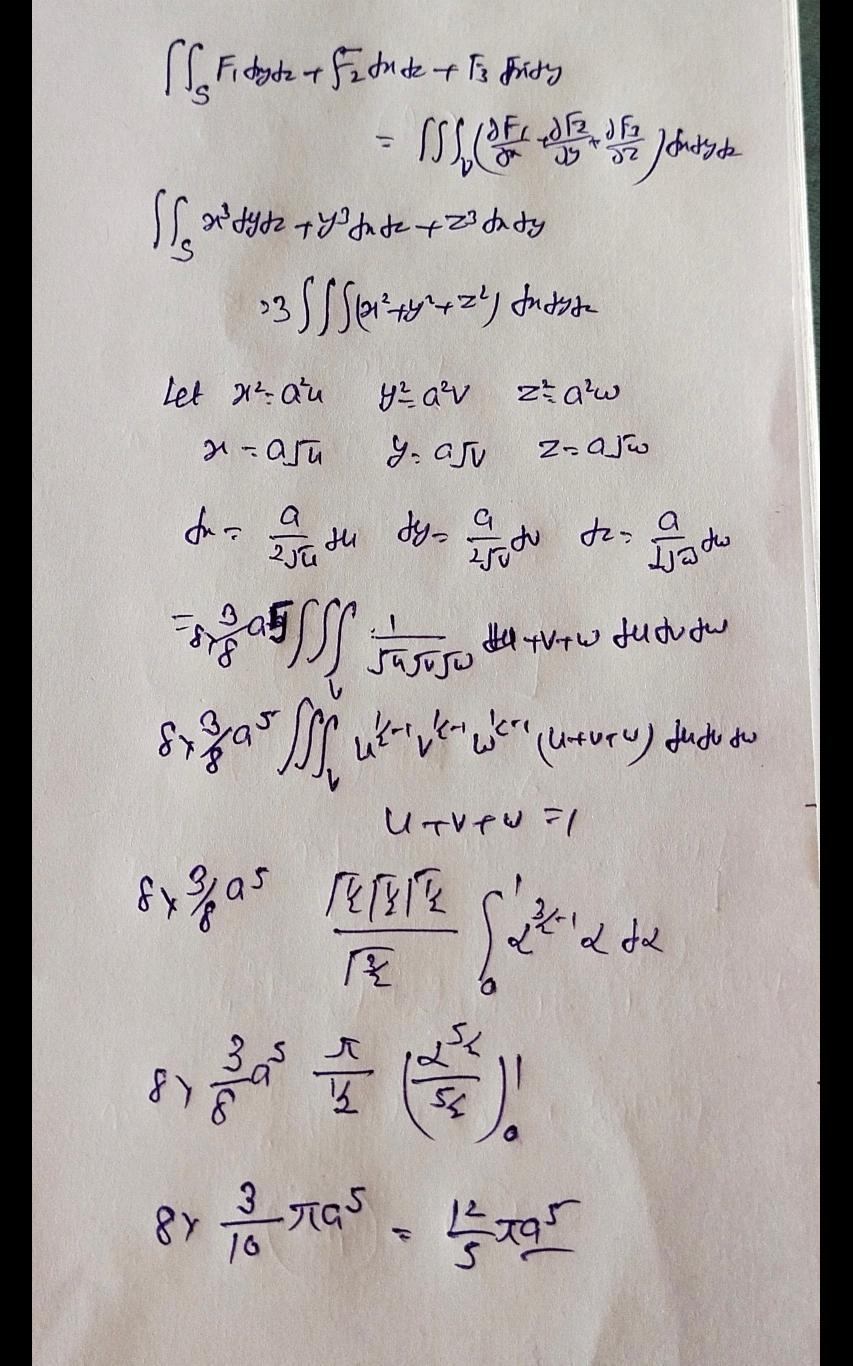 ∬_S F₁dydz + F₂ dx dz + F₃ dxdy
= ∭_V (∂F₁/∂x + ∂F₂/∂y + ∂F₃/∂z) dxdydz
∬_S x³dydz + y³dxdz + z³dxdy
=3 ∭(x²+y²+z²) dxdydz
Let x² = a²u y² = a²v z² = a²w
x = a√u y = a√v z = a√w
dx = a/(2√u) du dy = a/(2√v) dv dz = a/(2√w) dw
= 8×3/8 a⁵ ∭_V 1/(√u√v√w) u+v+w du dv dw
8×3/8 a⁵ ∭_V u^(½-1) v^(½-1) w^(½-1) (u+v+w) du dv dw
u+v+w = 1
8×3/8 a⁵ (Γ½ Γ½ Γ½)/(Γ3/2) ∫₀¹ α^(3/2-1) α dα
8× 3/8 a⁵ π/(½) (α^(5/2)/(5/2))₀¹
8× 3/10 πa⁵ = 12/5 πa⁵